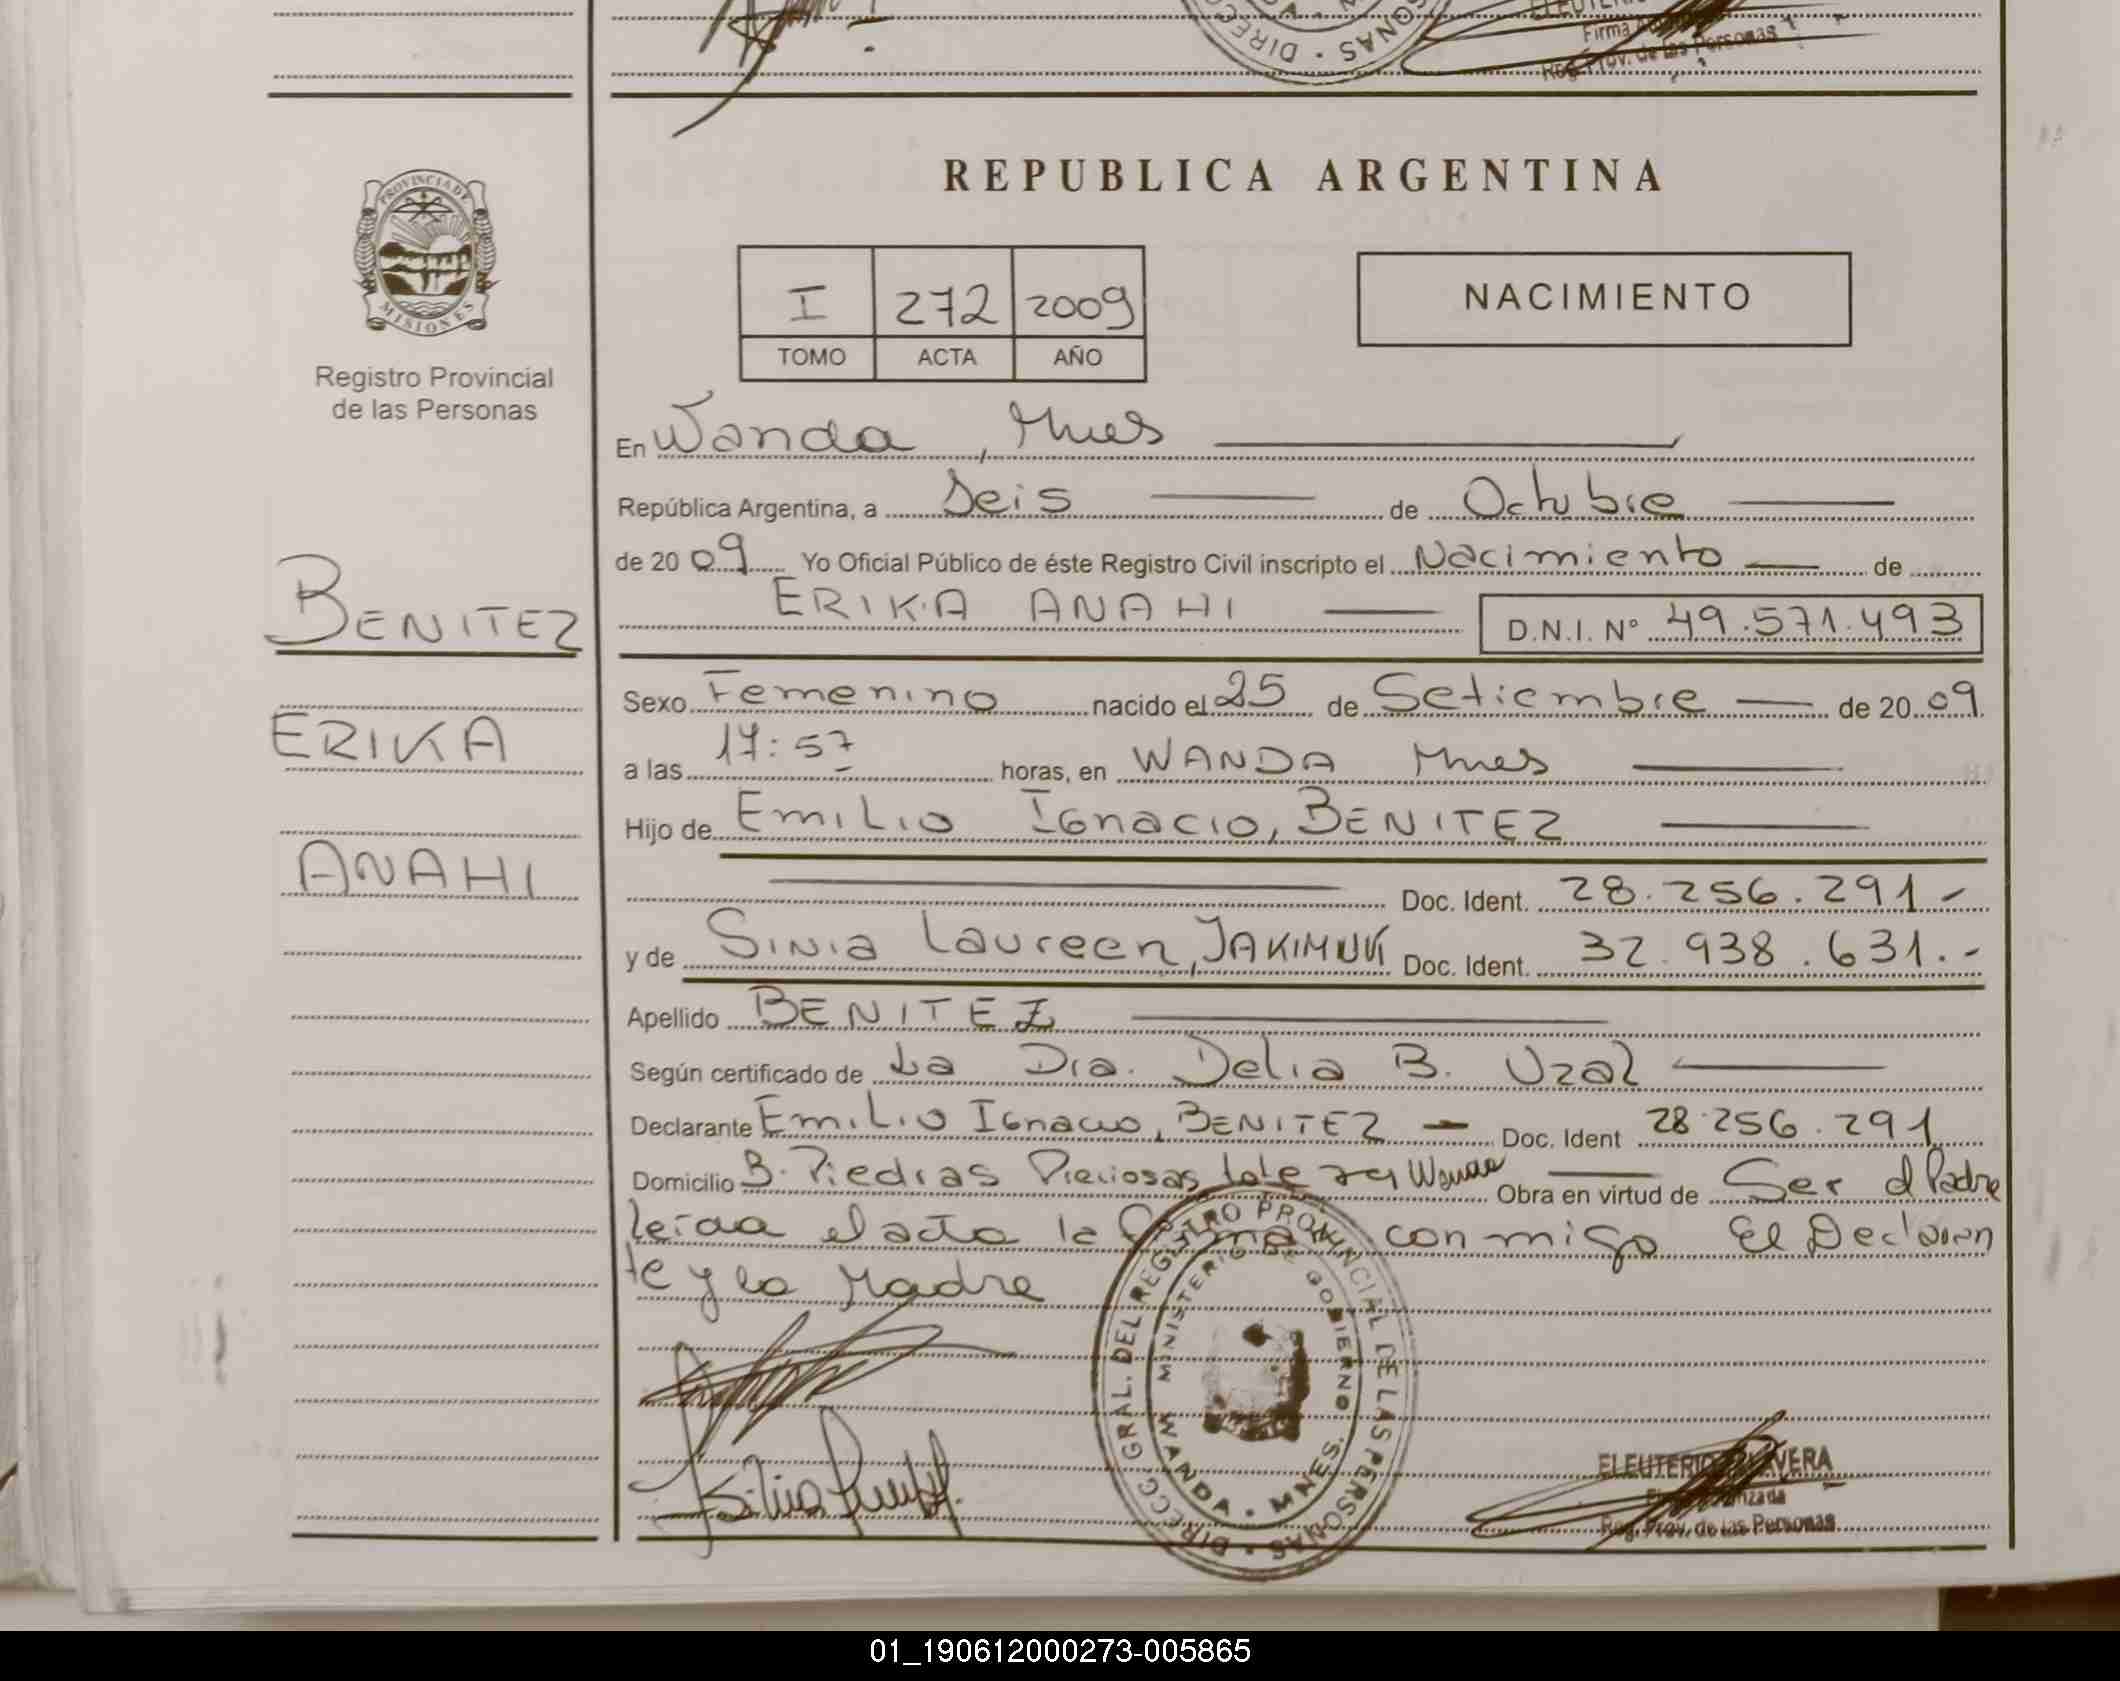 REPUBLICA ARGENTINA
PROVINCIA DE
MISIONES
Registro Provincial
de las Personas
I 272 2009
TOMO ACTA AÑO
NACIMIENTO
BENITEZ
ERIKA
ANAHI
En Wanda, Mnes
República Argentina, a Seis de Octubre
de 2009 Yo Oficial Público de éste Registro Civil inscripto el Nacimiento de
ERIKA ANAHI D.N.I. Nº 49.571.493
Sexo Femenino nacido el 25 de Setiembre de 2009
a las 17:57 horas, en WANDA Mnes
Hijo de Emilio Ignacio, BENITEZ
Doc. Ident. 28.256.291.-
y de Sinia Laureen, JAKIMUK Doc. Ident. 32.938.631.-
Apellido BENITEZ
Según certificado de La Dra. Delia B. Uzal
Declarante Emilio Ignacio, BENITEZ - Doc. Ident 28.256.291
Domicilio B. Piedras Preciosas Wanda Obra en virtud de Ser el Padre
leída el acta la firman conmigo El Declaran
te y la Madre
DIRECC. GRAL. DEL REGISTRO PROVINCIAL DE LAS PERSONAS
MINISTERIO DE GOBIERNO
WANDA - MNES.
ELEUTERIO
Reg. Prov. de las Personas
01_190612000273-005865